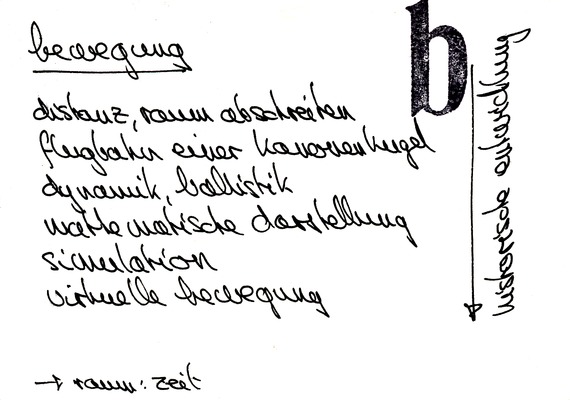 b
bewegung
distanz, raum abschreiten
flugbahn einer kanonenkugel
dynamik, ballistik
mathematische darstellung
simulation
virtuelle bewegung
→ raum: zeit
historische entwicklung